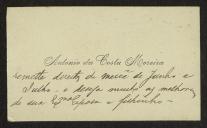 Antonio da Costa Moreira
remette direitos de mercê de Junho e
Julho. e deseja muito as melhoras
de sua Exma Esposa e filhinho.